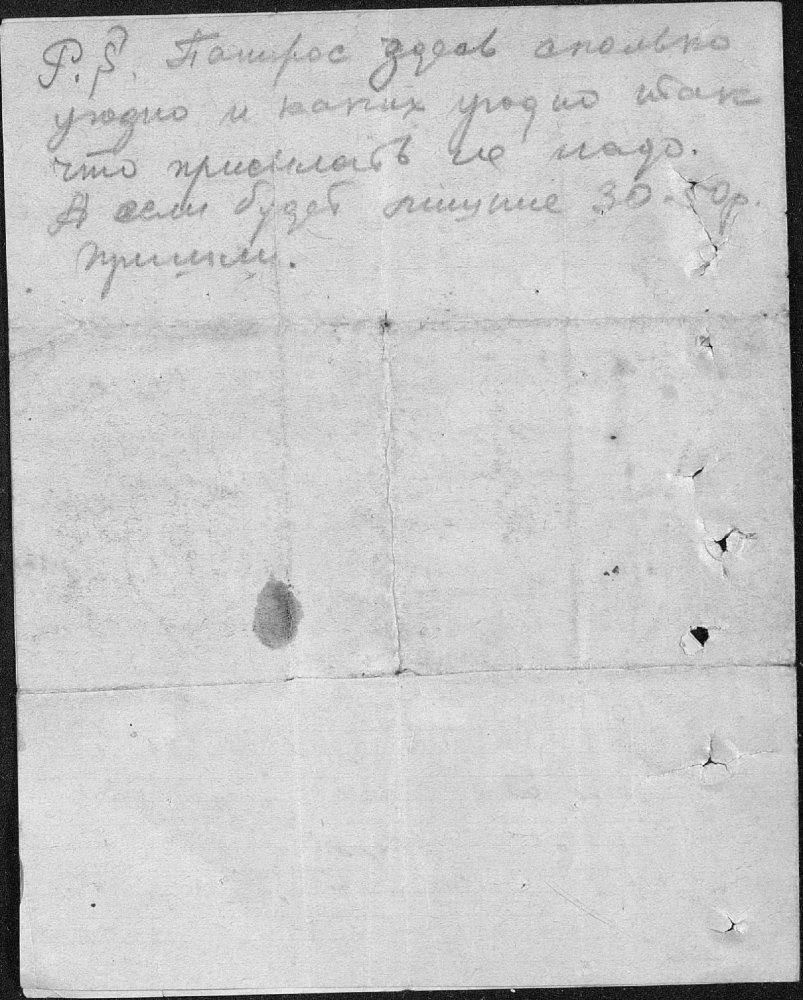 P.S. Папирос здесь сколько
угодно и каких угодно так
что присылать не надо.
А если будет лишние 30-50р.
пришли.